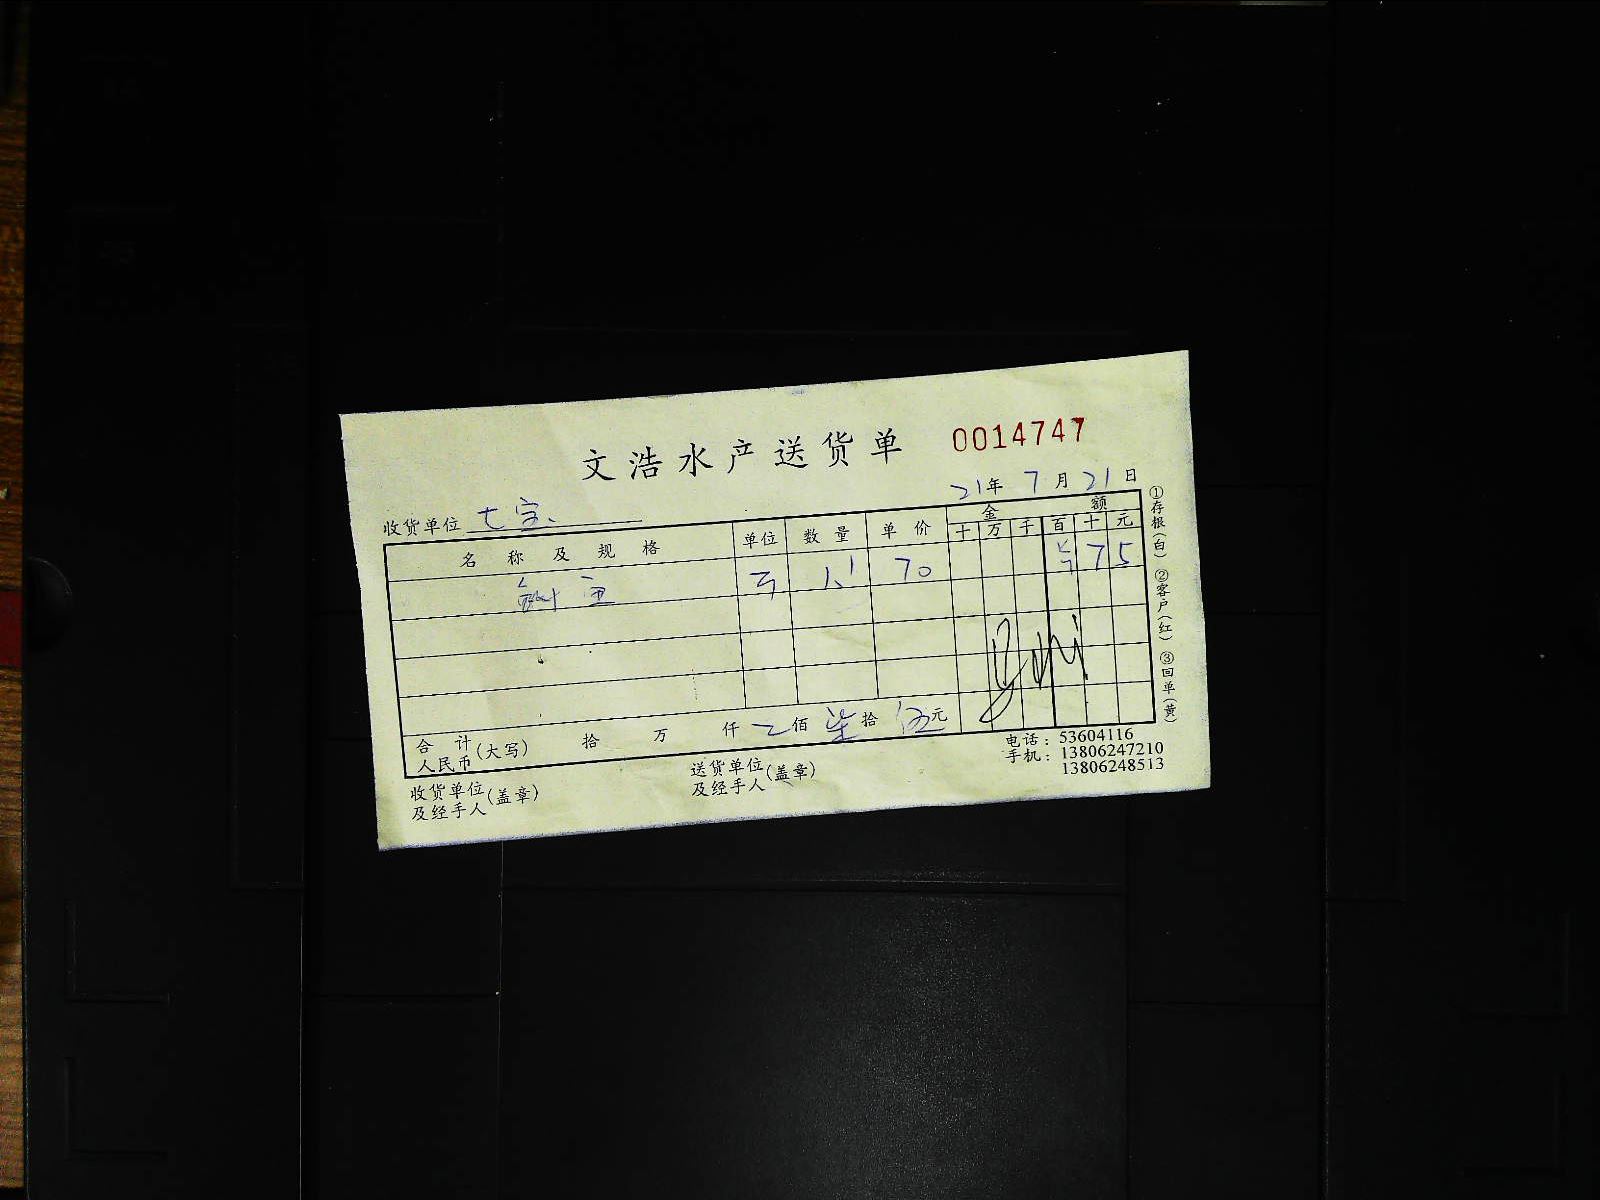 文浩水产送货单 0014747
21年 7月 21日
收货单位 七宝
名称及规格 单位 数量 单价 金额
十 万 千 百 十 元
70 ¥ 7 5
合计人民币(大写) 拾 万 仟 佰 柒拾 伍元
收货单位及经手人(盖章) 送货单位及经手人(盖章)
电话：53604116
手机：13806247210
13806248513
①存根(白) ②客户(红) ③回单(黄)